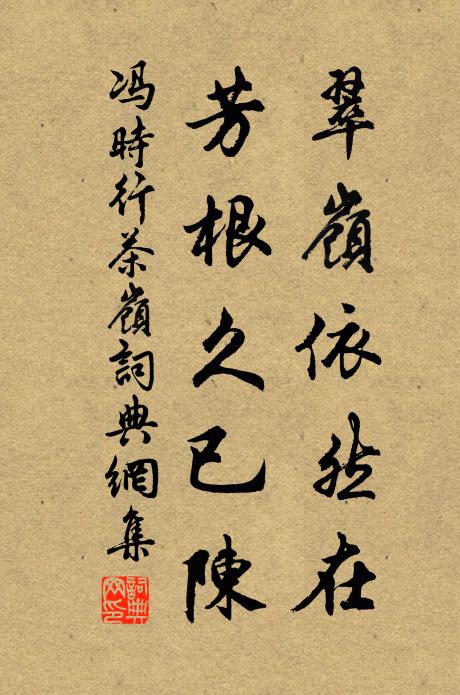 翠嶺依然在
芳根久已陳
冯時行茶嶺詞典網集
詞典網印